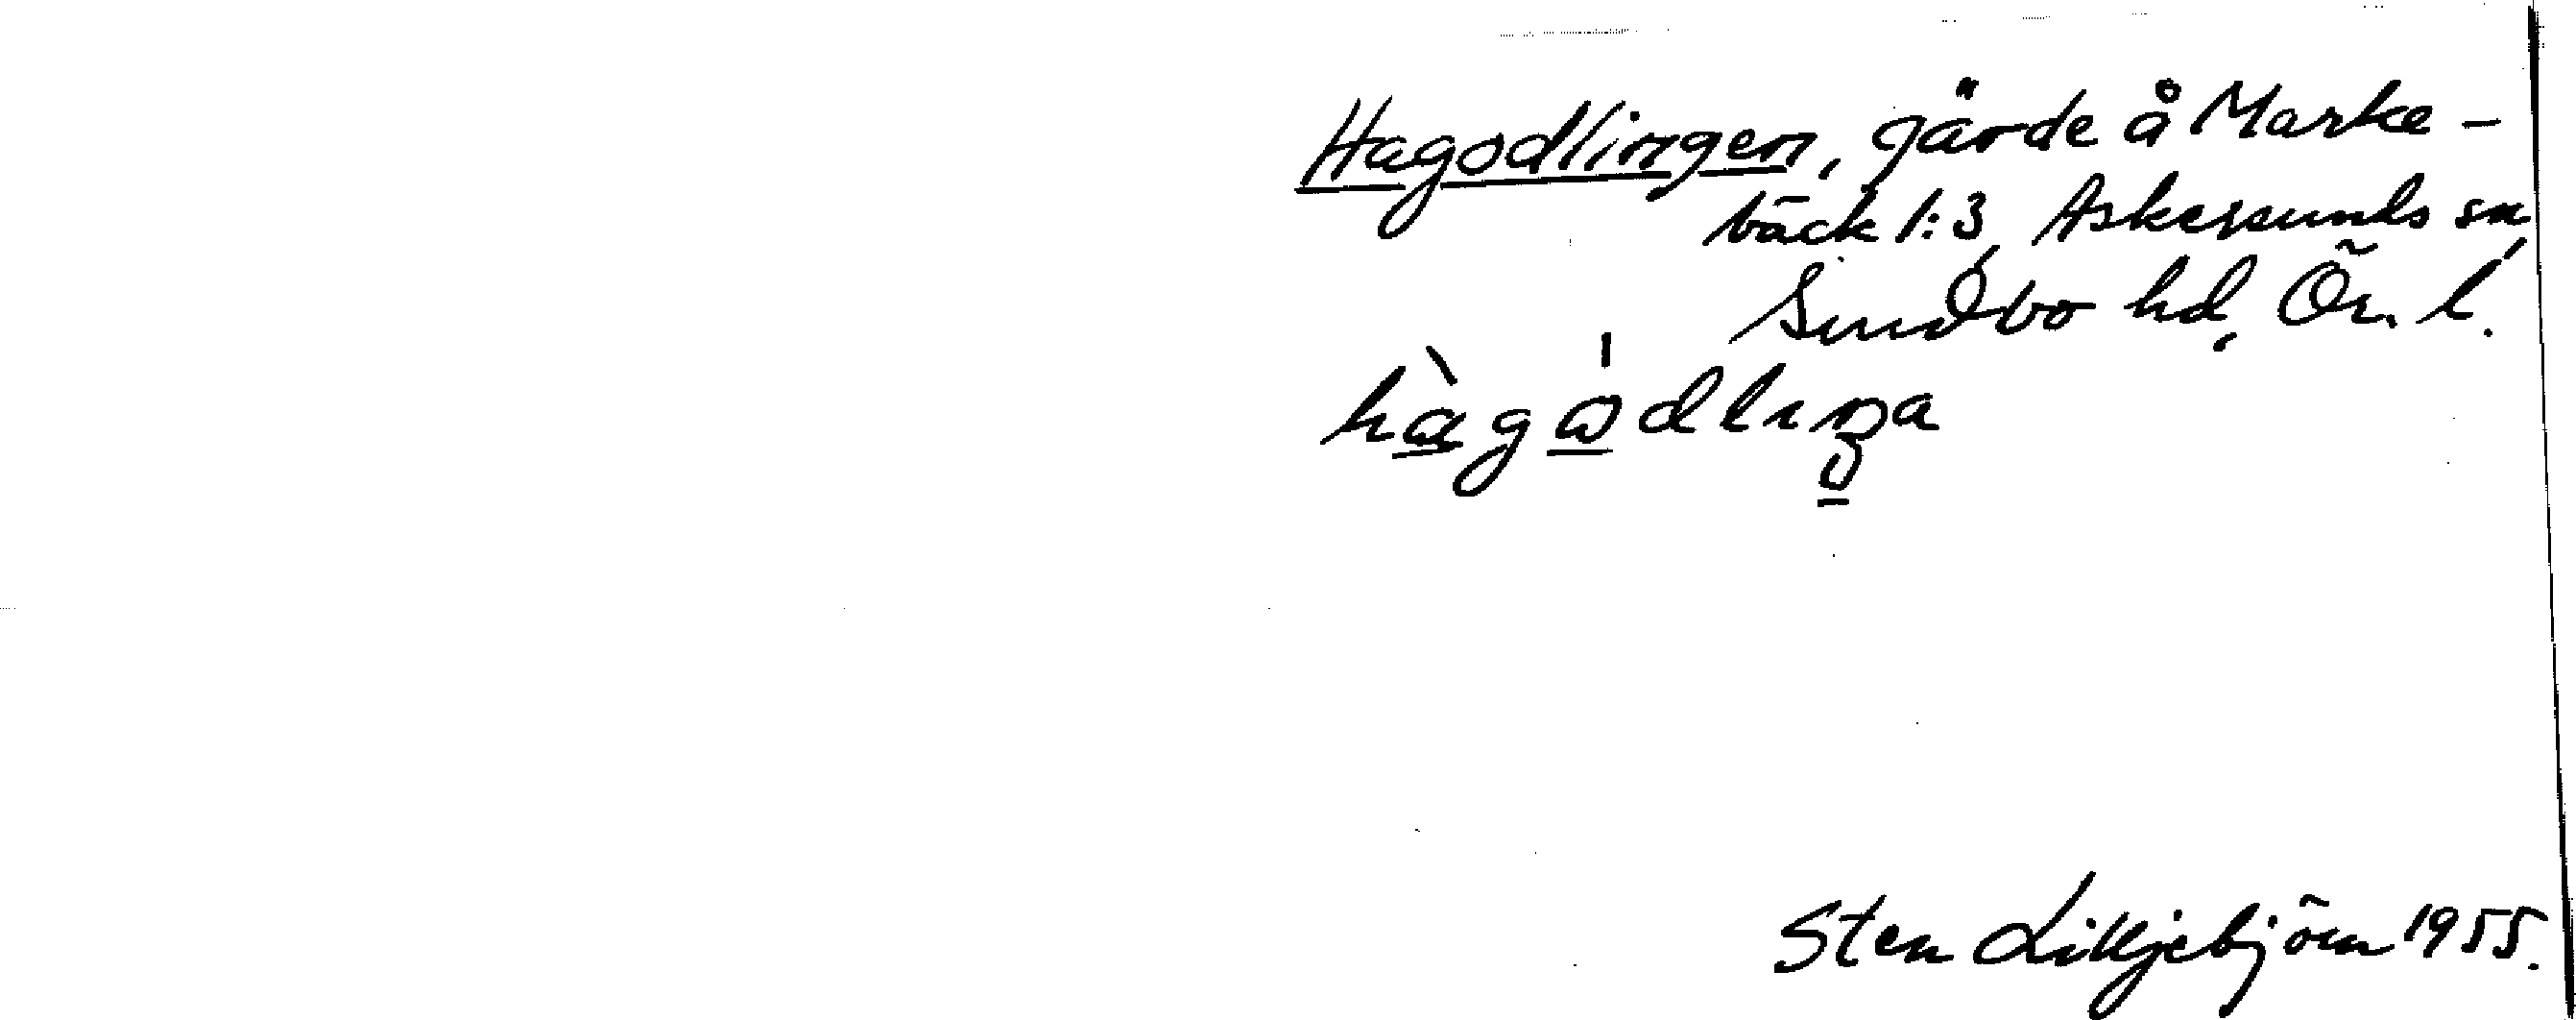 Hagodlingen, gärde å Marke-
bäck 1:3, Askersunds sn,
Sundbo hd, Ör. l.
Sten Lilljebjörn 1955.